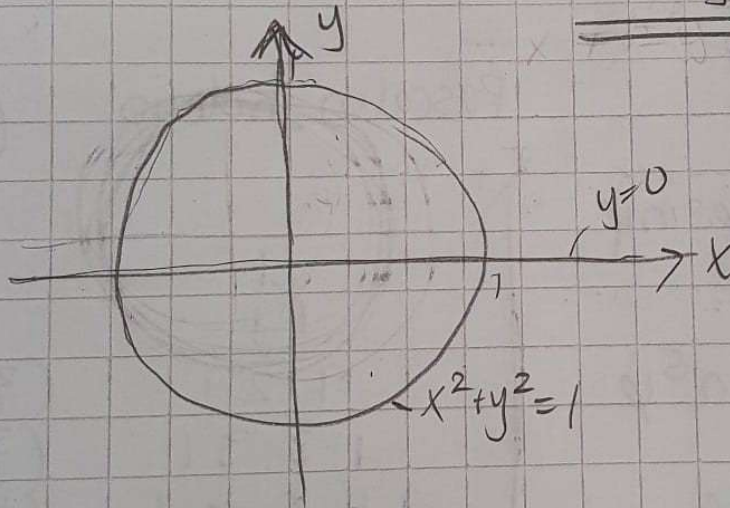 y
y=0
x
1
x²+y²=1